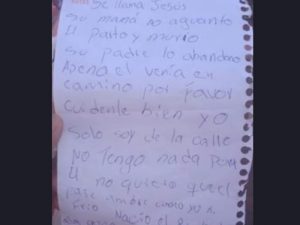 Se llama Jesus
Su mamá no aguanto
El parto y murio
Su padre lo abandono
Apena el venia en
camino por favor
Cuidenle bien yo
Solo soy de la calle
No Tengo nada para
el no quiero que el
pase ambre como yo ni
frio Nacio el